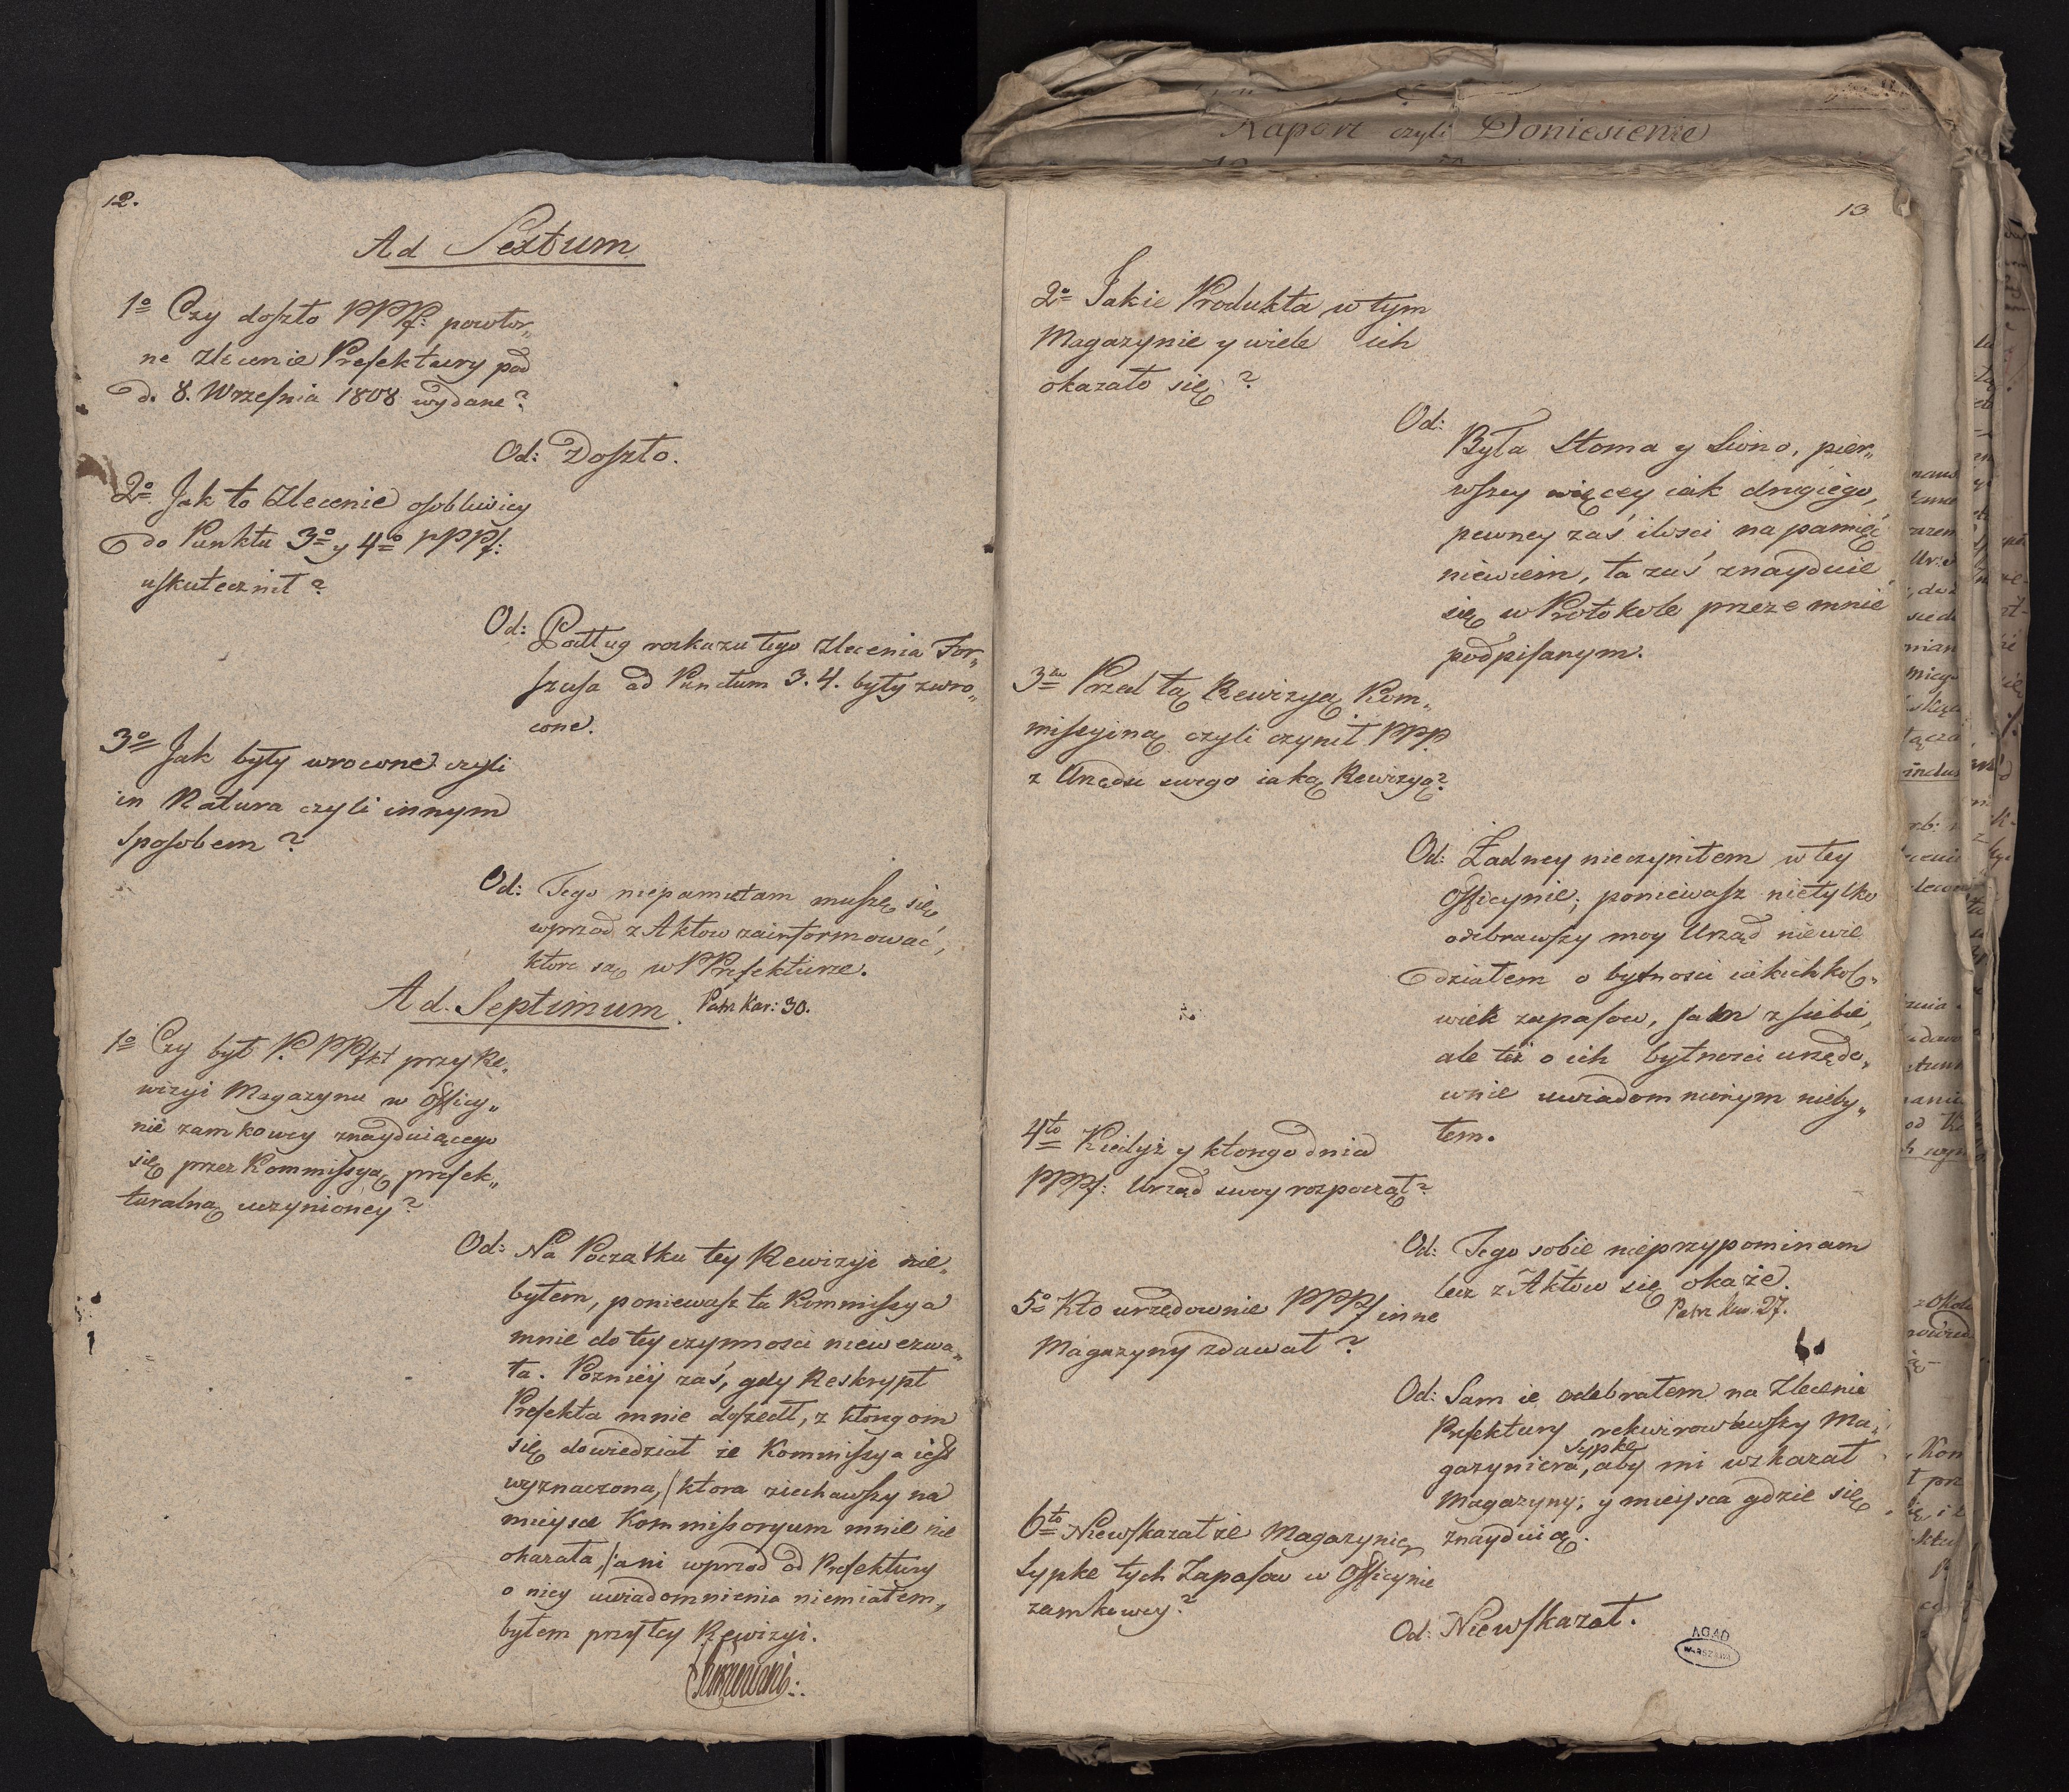 12.
Ad Sextum
1o Czy doszło PPPf: powtor„
ne Zlecenie Prefektury pod
d. 8. Wrzesnia 1808 wydane?
Od: Doszło.
2o Jak to Zlecenie osobliwiey
do Punktu 3o y 4o PPPf:
uskutecznił?
Od: Podług roskazu tego Zlecenia For„
szusa ad Punctum 3. 4. były zwro„
cone.
3o Jak były wrocone czyli
in Natura czyli innym
sposobem?
Od: Tego niepamiętam muszę się
wprzod z Aktow zainformować,
ktore są w PPrefekturze.
Ad. Septimum. Patrz Kar: 30.
1o Czy był P. PPPfkt przy Re„
wizyi Magazynu w Officy„
nie zamkowey znayduiącego
się przez Kommissyą prefek„
turalną uczynioney?
Od: Na Początku tey Rewizyi nie„
byłem, poniewasz ta Kommissya
mnie do tey czynnosci niewezwa„
ła. Pozniey zaś, gdy Reskrypt
Prefekta mnie doszedł, z ktorego m
się dowiedział że Kommissya iest
wyznaczona, /:ktora ziechawszy na
mieysce Kommissoryum mnie nie
okazała,/: ani wprzod od Prefektury
o niey uwiadomnienia niemiałem,
byłem przy tey Rewizyi.
13
2o Jakie Produkta w tym
Magazynie y wiele ich
okazało się?
Od:
Była Słoma y Siono, pier„
wszey więcey iak drugiego,
pewney zaś ilosci na pamięć
niewiem, ta zaś znayduie
się w Protokole przezemnie
podpisanym.
3tio Przed tą Rewizyą Kom„
missyiną czyli czynił PPP.
z Urzędu swego iaką Rewizyą?
Od: Żadney nieczyniłem w tey
Officynie; poniewasz nietylko
odebrawszy moy Urząd niewie
działem o bytnosci iakichkol„
wiek zapasow, sam z siebie,
ale też o ich bytnosci urzędo„
wnie uwiadomnionym nieby„
łem.
4to Kiedyż y ktorego dnia
PPPf: Urząd swoy rozpoczął?
Od: Tego sobie nieprzypominam
lecz z Aktow się okaże.
Patrz kar. 27.
5o Kto urzędownie PPPf inne
Magazyny zdawał?
Od: Sam ie odebrałem na Zlecenie
Prefektury rekwirowawszy Ma„
gazyniera, Sypke aby mi wskazał
Magazyny, y mieysca gdzie się
znayduią.
6to Niewskazał że Magazynier
Sypke tych Zapasow w Officynie
zamkowey?
Od: Niewskazał.
AGAD
WARSZAWA
Raport czyli Doniesienie